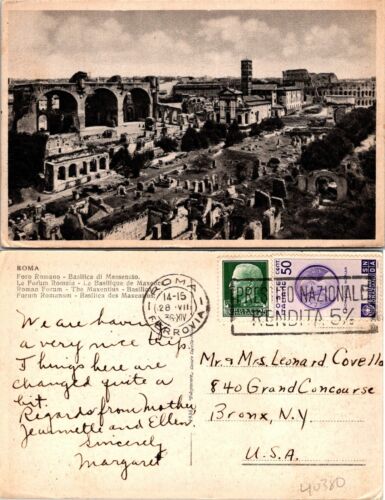 ROMA
Foro Romano - Basilica di Massenzio.
Le Forum Romain - La Basilique de Maxence
Roman Forum - The Maxentius - Basilica
Forum Romanum - Basilica des Maxentius
ROMA
14-15
28·VIII
36 XIV
FERROVIA
PRESTITO NAZIONALE
RENDITA 5%
50
CENT
We are having
a very nice trip.
Things here are
changed quite a
bit.
Regards from mother,
Jeannette and Ellen.
Sincerely
Margaret
Mr. & Mrs. Leonard Covello
840 Grand Concourse
Bronx, N.Y.
U.S.A.
40380